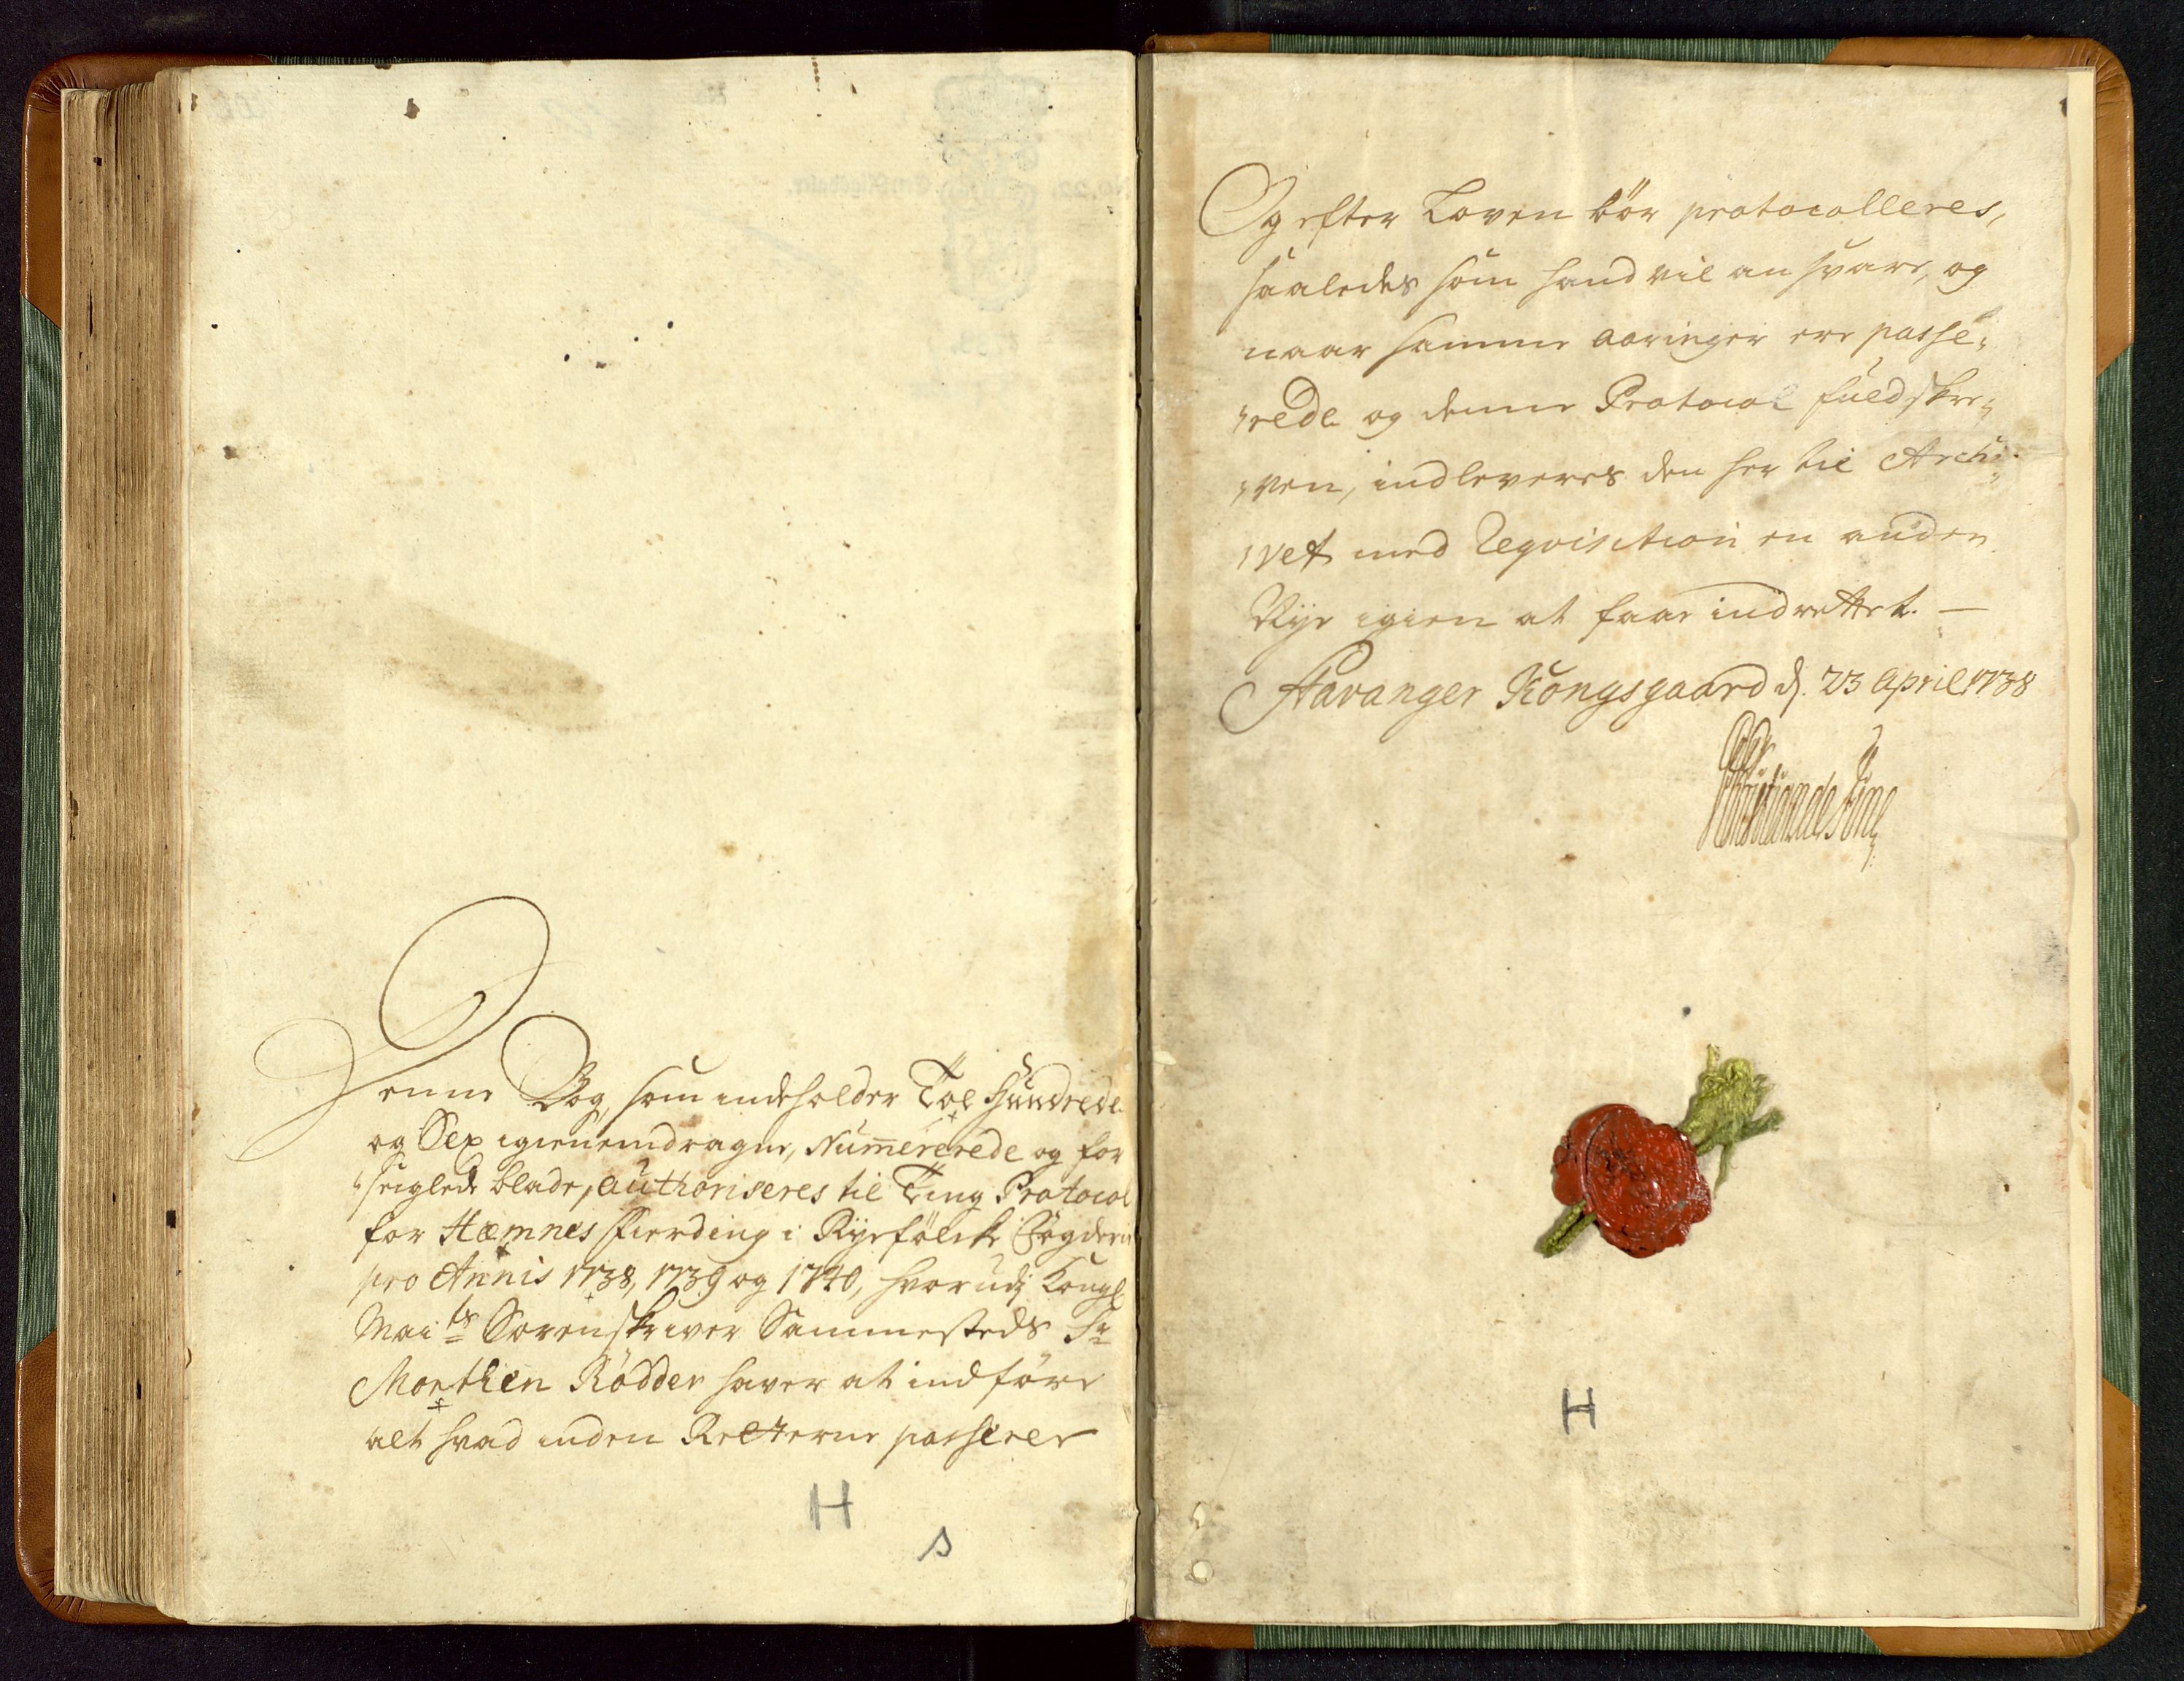 Denne Bog, som indeholder Toe Hundrede
og Sex igiennemdragne, Numererede og for
"seiglede blade, authoriseres til Ting Protocol
for Hæmnes Fierding i Ryefölcke Fogderie
pro Annis 1738, 1739 og 1740, hvorudj Kongl
Maits Sorenskriver Sammesteds Sr
Morthen Rödder haver at indföre
alt hvad inden Retterne passerer
H
s
Og efter Loven bör protocolleres,
saaledes som hand vil ansvare, og
naar samme aaringer ere passe,,
"rede og denne Protocol fuldskre,,
"ven, indleveres den her til Archi,,
"vet med Reqvisition en anden
Nye igien at faae indrettet. —
Stavanger Kongsgaard d. 23 April 1738
H